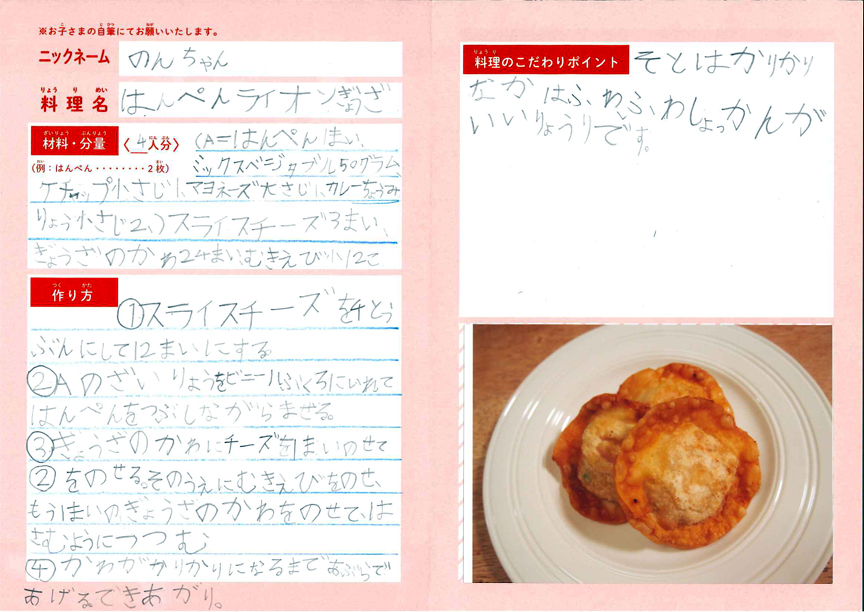 ※お子さまの自筆にてお願いいたします。
ニックネーム のんちゃん
料理名 はんぺんライオンぎょうざ
材料・分量 〈4人分〉 (A=はんぺん1まい、
(例:はんぺん・・・・・・・・2枚) ミックスベジタブル50グラム、
ケチャップ小さじ1、マヨネーズ大さじ1、カレーちょうみ
りょう小さじ2、)スライスチーズ3まい、
ぎょうざのかわ24まい、むきえび小12こ
作り方
①スライスチーズを4とう
ぶんにして12まいにする
②Aのざいりょうをビニールぶくろにいれて
はんぺんをつぶしながらませる。
③ぎょうざのかわにチーズを1まいのせて
②をのせる。そのうえにむきえびをのせ、
もう1まいのぎょうざのかわをのせて、は
さむようにつつむ
④かわがかりかりになるまであぶらで
あげるできあがり。
料理のこだわりポイント そとはかりかり
なかはふわふわしょっかんが
いいりょうりです。